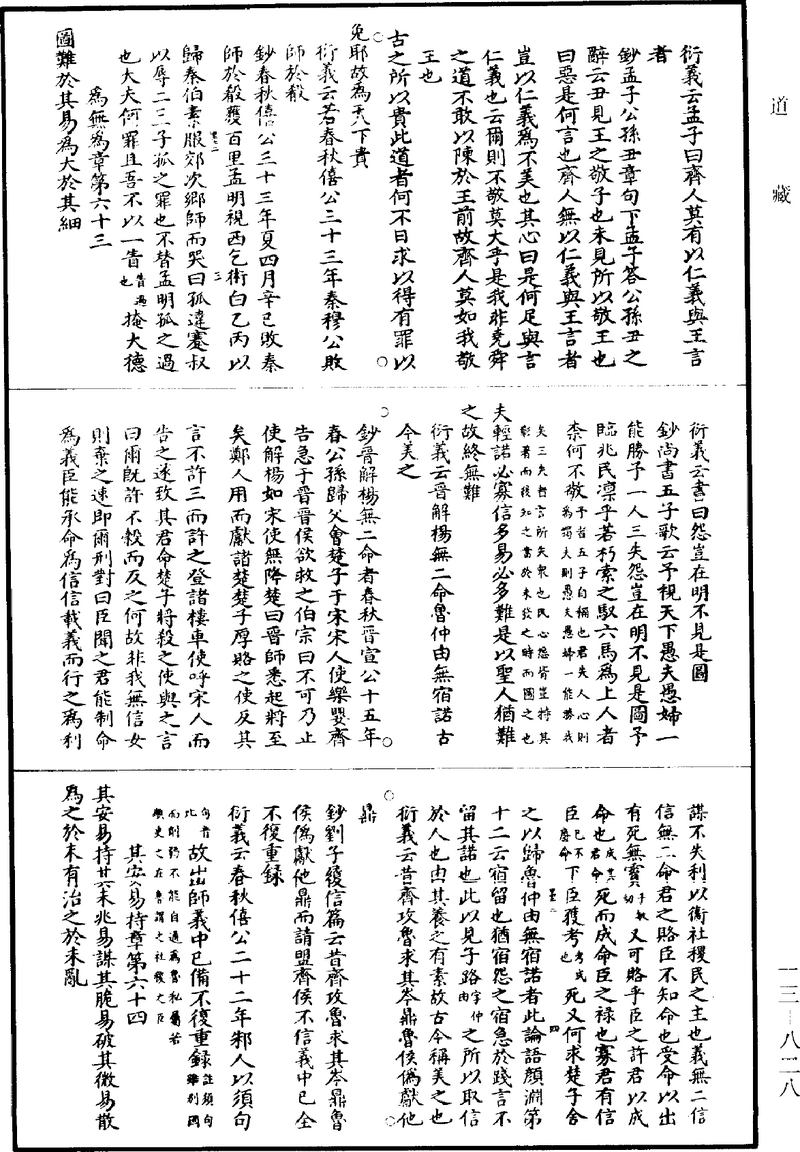 道藏
衍義云孟子曰齊人莫有以仁義與王言
者
鈔孟子公孫丑章句下孟子答公孫丑之
辭云丑見王之敬子也未見所以敬王也
曰惡是何言也齊人無以仁義與王言者
豈以仁義為不美也其心曰是何足與言
仁義也云爾則不敬莫大乎是我非堯舜
之道不敢以陳於王前故齊人莫如我敬
王也
古之所以貴此道者何不日求以得有罪以
免耶故為天下貴
衍義云若春秋僖公三十三年秦穆公敗
師於殽
鈔春秋僖公三十三年夏四月辛巳敗秦
師於殽獲百里孟明視西乞術白乙丙以
歸秦伯素服郊次鄉師而哭曰孤違蹇叔
以辱二三子孤之罪也不替孟明孤之過
也大夫何罪且吾不以一眚眚過也掩大德
為無為章第六十三
圖難於其易為大於其細
衍義云書曰怨豈在明不見是圖
鈔尚書五子歌云予視天下愚夫愚婦一
能勝予一人三失怨豈在明不見是圖予
臨兆民凛乎若朽索之馭六馬為上人者
柰何不敬予者五子自稱也君失人心則
為獨夫則愚夫愚婦一能勝我
矣三失者言所失衆也民心怨背豈待其
彰著而後知之當於未發之時而圖之也
夫輕諾必寡信多易必多難是以聖人猶難
之故終無難
衍義云晉解楊無二命魯仲由無宿諾古
今美之
鈔晉解楊無二命者春秋晉宣公十五年
春公孫歸父會楚子于宋宋人使樂嬰齊
告急于晉晉侯欲救之伯宗曰不可乃止
使解楊如宋使無降楚曰晉師悉起將至
矣鄭人用而獻諸楚楚子厚賂之使反其
言不許三而許之登諸樓車使呼宋人而
告之遂致其君命楚子將殺之使與之言
曰爾既許不穀而反之何故非我無信女
則棄之速即爾刑對曰臣聞之君能制命
為義臣能承命為信信載義而行之為利
謀不失利以衛社稷民之主也義無二信
信無二命君之賂臣不知命也受命以出
有死無霣于敏切又可賂乎臣之許君以成
命也成其君命死而成命臣之祿也寡君有信
臣已不廢命下臣獲考考成也死又何求楚子舍
之以歸魯仲由無宿諾者此論語顏淵第
十二云宿留也猶宿怨之宿急於踐言不
留其諾也此以見子路字仲由之所以取信
於人也由其養之有素故古今稱美之也
衍義云昔齊攻魯求其岑鼎魯侯偽獻他
鼎
鈔劉子履信篇云昔齊攻魯求其岑鼎魯
侯偽獻他鼎而請盟齊侯不信義中已全
不復重録
衍義云春秋僖公二十二年邾人以須句
故出師義中已備不復重録註須句
其安易持章第六十四
其安易持其未兆易謀其脆易破其微易散
為之於未有治之於未亂
一三—八二八